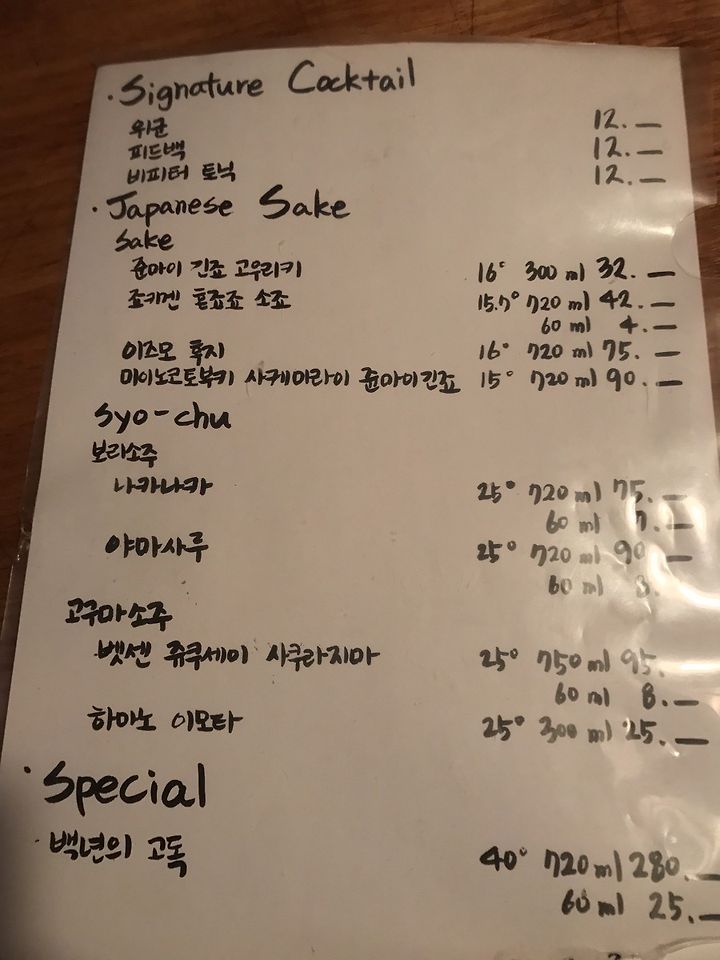 · Signature Cocktail
위균 12. —
피드백 12. —
비피터 토닉 12. —
· Japanese Sake
Sake
쥰마이 긴죠 고우리키 16° 300 ml 32. —
죠키겐 혼죠죠 소죠 15.7° 720 ml 42. —
60 ml 4. —
이즈모 훅지 16° 720 ml 75. —
미이노코토부키 사케미라이 쥰마이긴죠 15° 720 ml 90. —
Syo-chu
보리소주
나카나카 25° 720 ml 75. —
60 ml 7. —
야마사루 25° 720 ml 90 —
60 ml 8.
고구마소주
벳센 쥬쿠세이 사쿠라지마 25° 750 ml 95.
60 ml 8. —
하마노 이모타 25° 300 ml 25. —
· Special
· 백년의 고독 40° 720 ml 280. —
60 ml 25. —